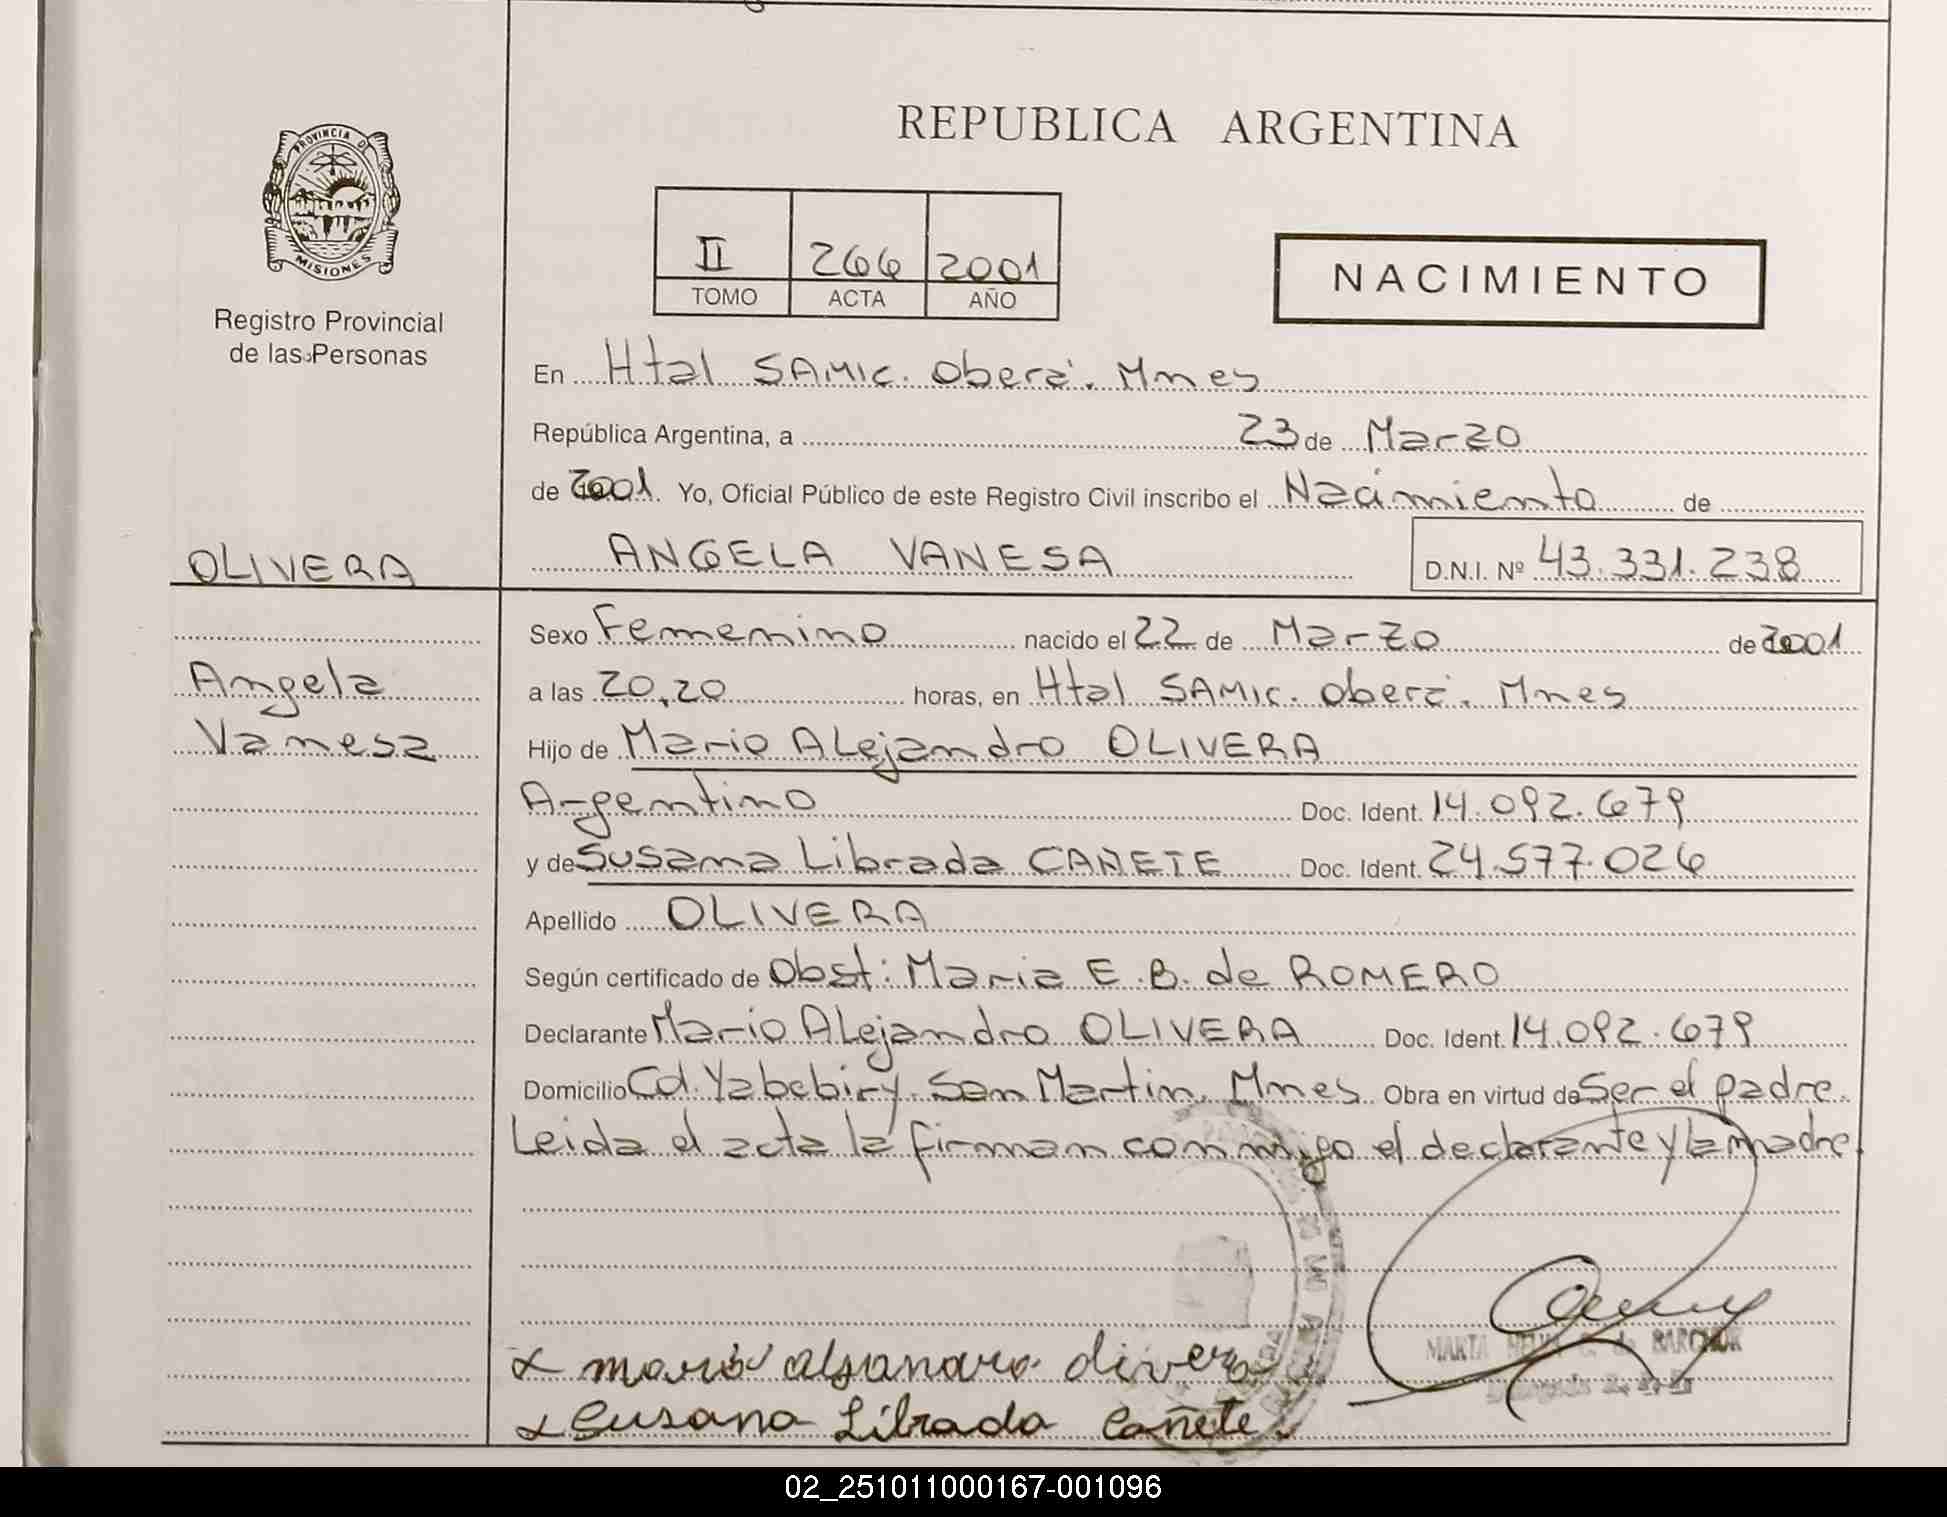 REPUBLICA ARGENTINA
PROVINCIA DE
MISIONES
Registro Provincial
de las Personas
II 266 2001
TOMO ACTA AÑO
NACIMIENTO
En Htal SAMIC. Oberá. Mnes
República Argentina, a 23 de Marzo
de 2001. Yo, Oficial Público de este Registro Civil inscribo el Nacimiento de
OLIVERA
ANGELA VANESA D.N.I. Nº 43.331.238
Angela
Vanesa
Sexo Femenino nacido el 22 de Marzo de 2001
a las 20,20 horas, en Htal SAMIC. Oberá. Mnes
Hijo de Mario ALejandro OLIVERA
Argentino Doc. Ident. 14.092.679
y de Susana Librada CAÑETE Doc. Ident. 24.577.026
Apellido OLIVERA
Según certificado de Obst: Maria E.B. de ROMERO
Declarante Mario ALejandro OLIVERA Doc. Ident. 14.092.679
Domicilio Cd. Yabebiry. San Martin. Mnes Obra en virtud de Ser el padre.
Leida el acta la firman conmigo el declarante y la madre.
MARTA C. de
x mario alejandro olivera
x Susana Librada Cañete.
02_251011000167-001096